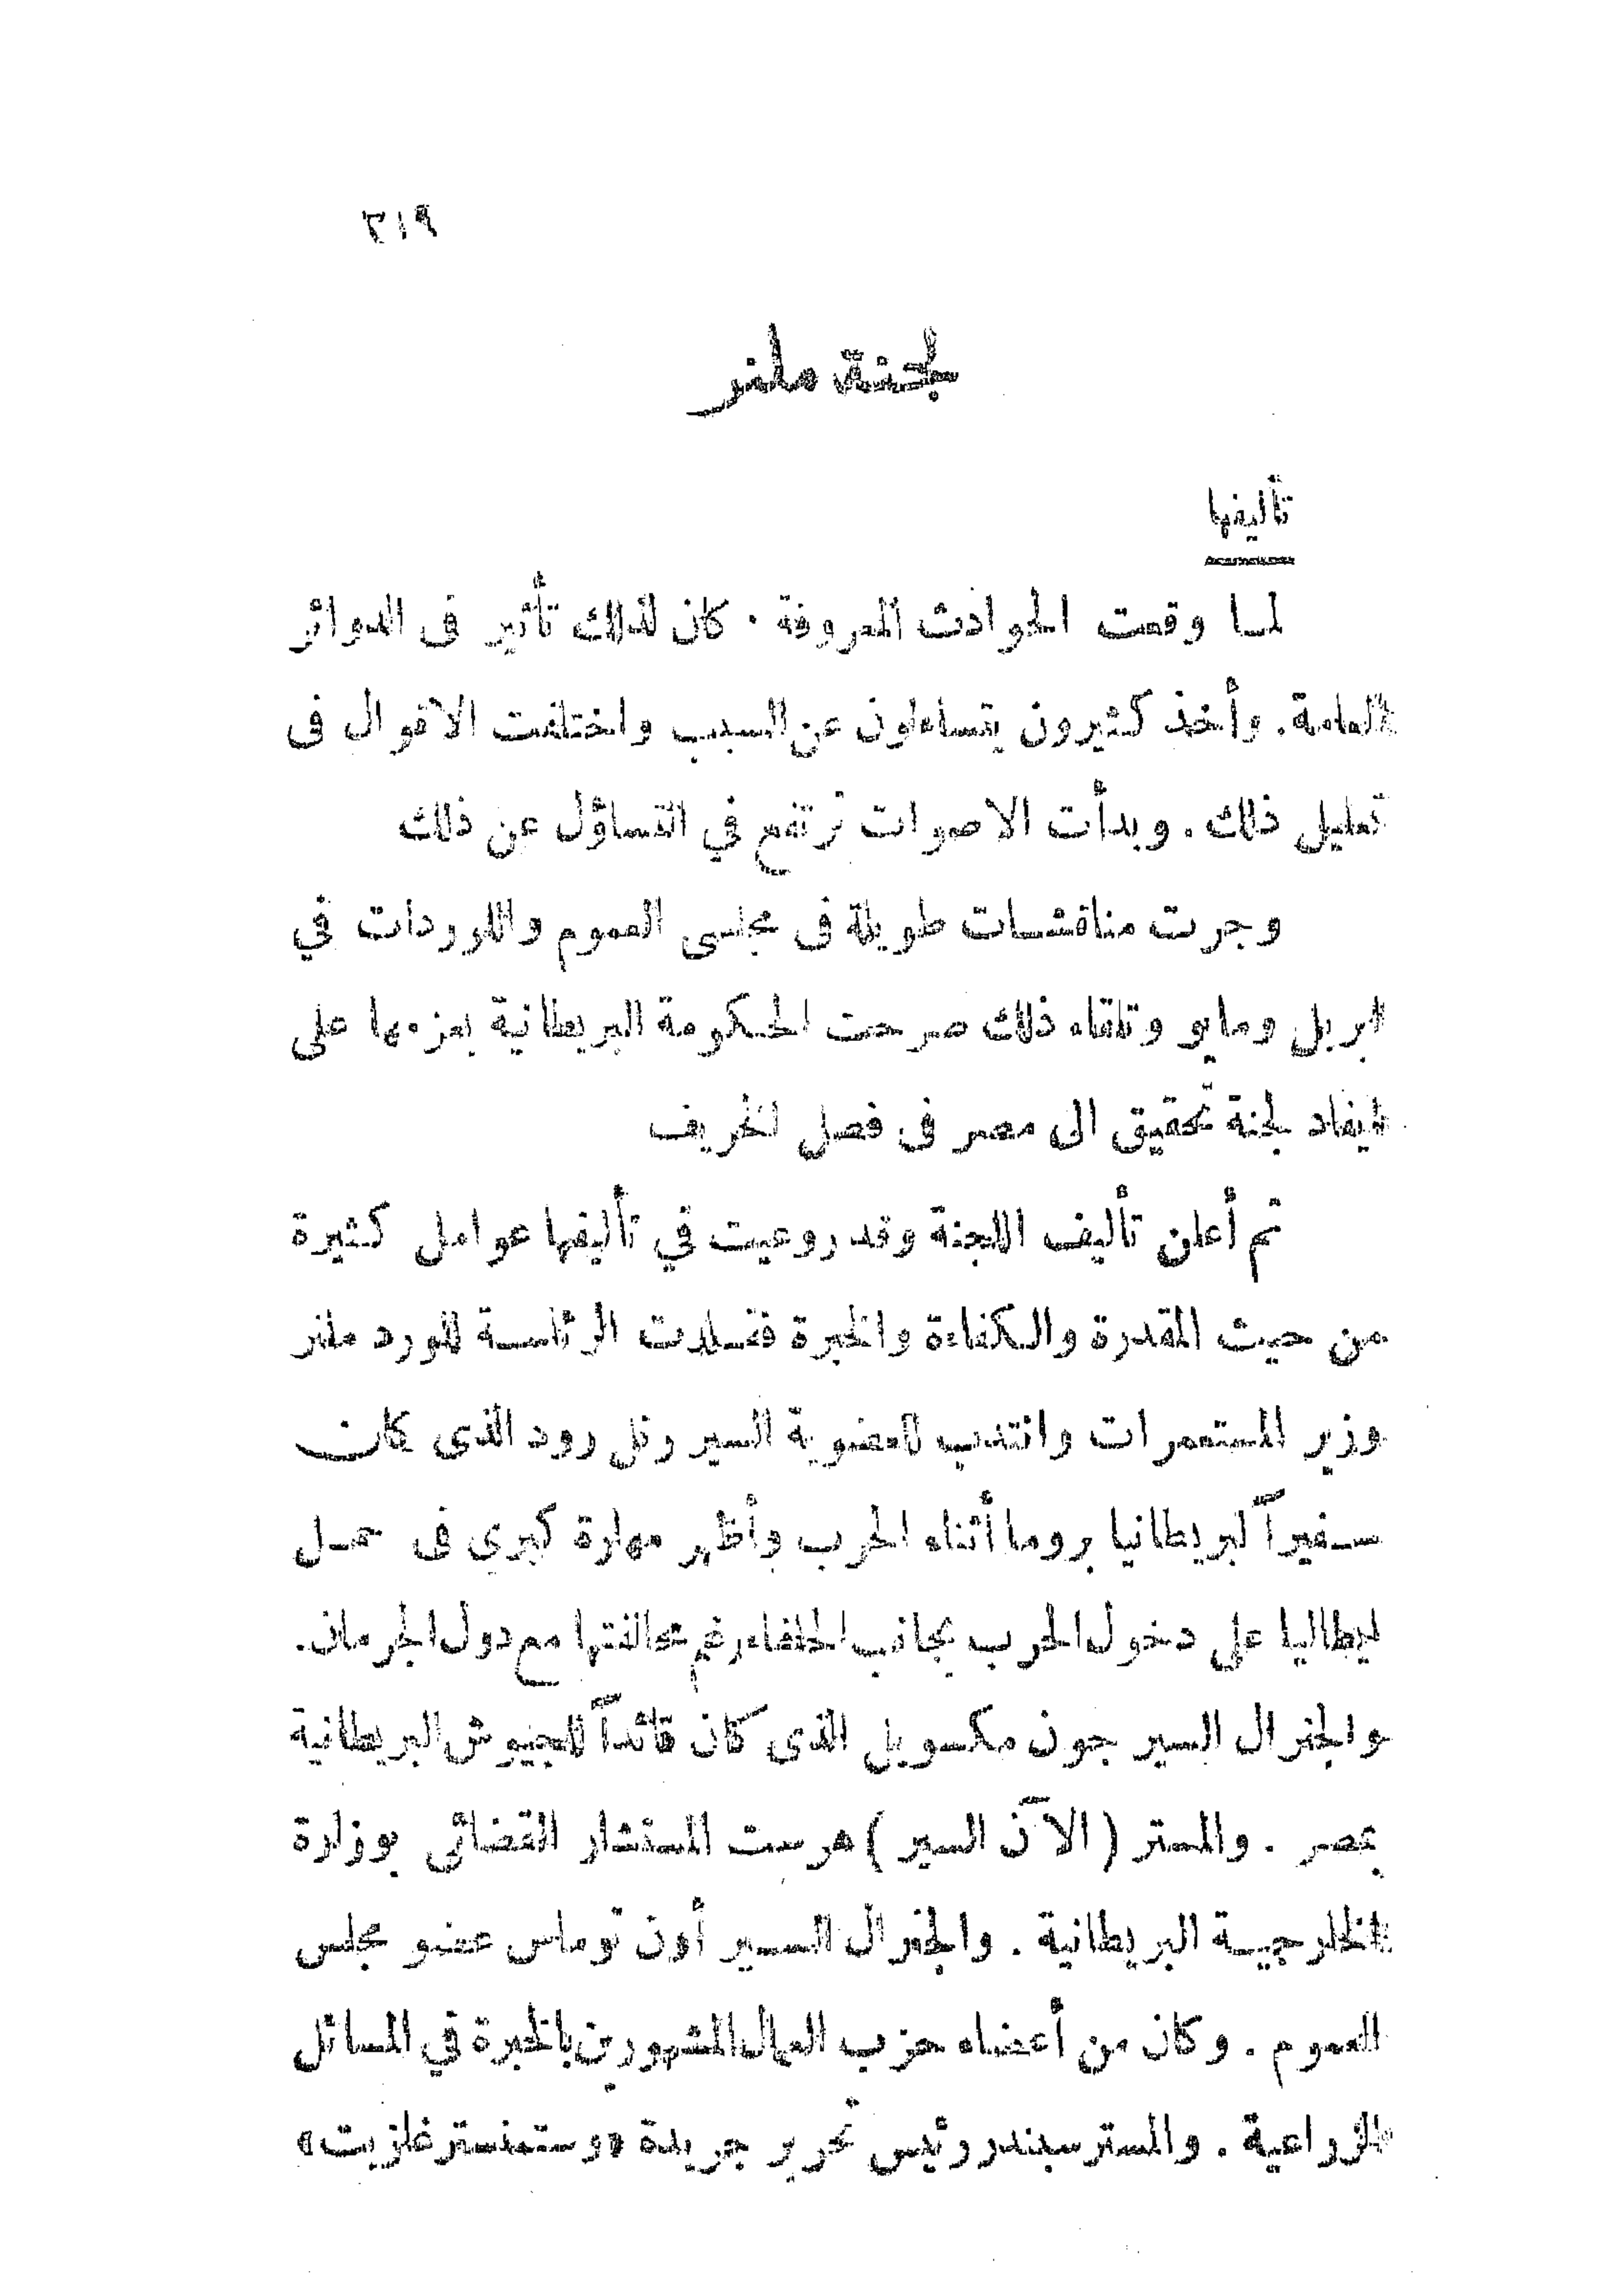 ٣١٩
لجنة ملنر
تأليفها
لما وقعت الحوادث المعروفة . كان لذلك تأثير فى الدوائر
العامة . وأخذ كثيرون يتساءلون عن السبب واختلفت الاقوال فى
تعليل ذلك . وبدأت الاصوات ترتفع في التساؤل عن ذلك
وجرت مناقشات طويلة فى مجلسى العموم واللوردات في
ابريل ومايو وتلقاء ذلك صرحت الحكومة البريطانية بعزمها على
ايفاد لجنة تحقيق الى مصر فى فصل لخريف
ثم أعلن تأليف اللجنة وقد روعيت في تأليفها عوامل كثيرة
من حيث المقدرة والكفاءة والخبرة فتقلدت الرئاسة للورد ملنر
وزير المستعمرات وانتدب للعضوية السير رنل رود الذى كان
سفيراً لبريطانيا بروما أثناء الحرب وأظهر مهارة كبرى فى حمل
ايطاليا على دخول الحرب بجانب الحلفاء رغم محالفتها مع دول الجرمان .
والجنرال السير جون مكسويل الذى كان قائداً للجيوش البريطانية
بمصر . والمستر ( الآن السير ) هرست المستشار القضائى بوزارة
الخارجية البريطانية . والجنرال السير أون توماس عضو مجلس
العموم . وكان من أعضاء حزب العمال المشهورين بالخبرة في المسائل
الزراعية . والمستر سبندر رئيس تحرير جريدة «وستمنستر غازيت»